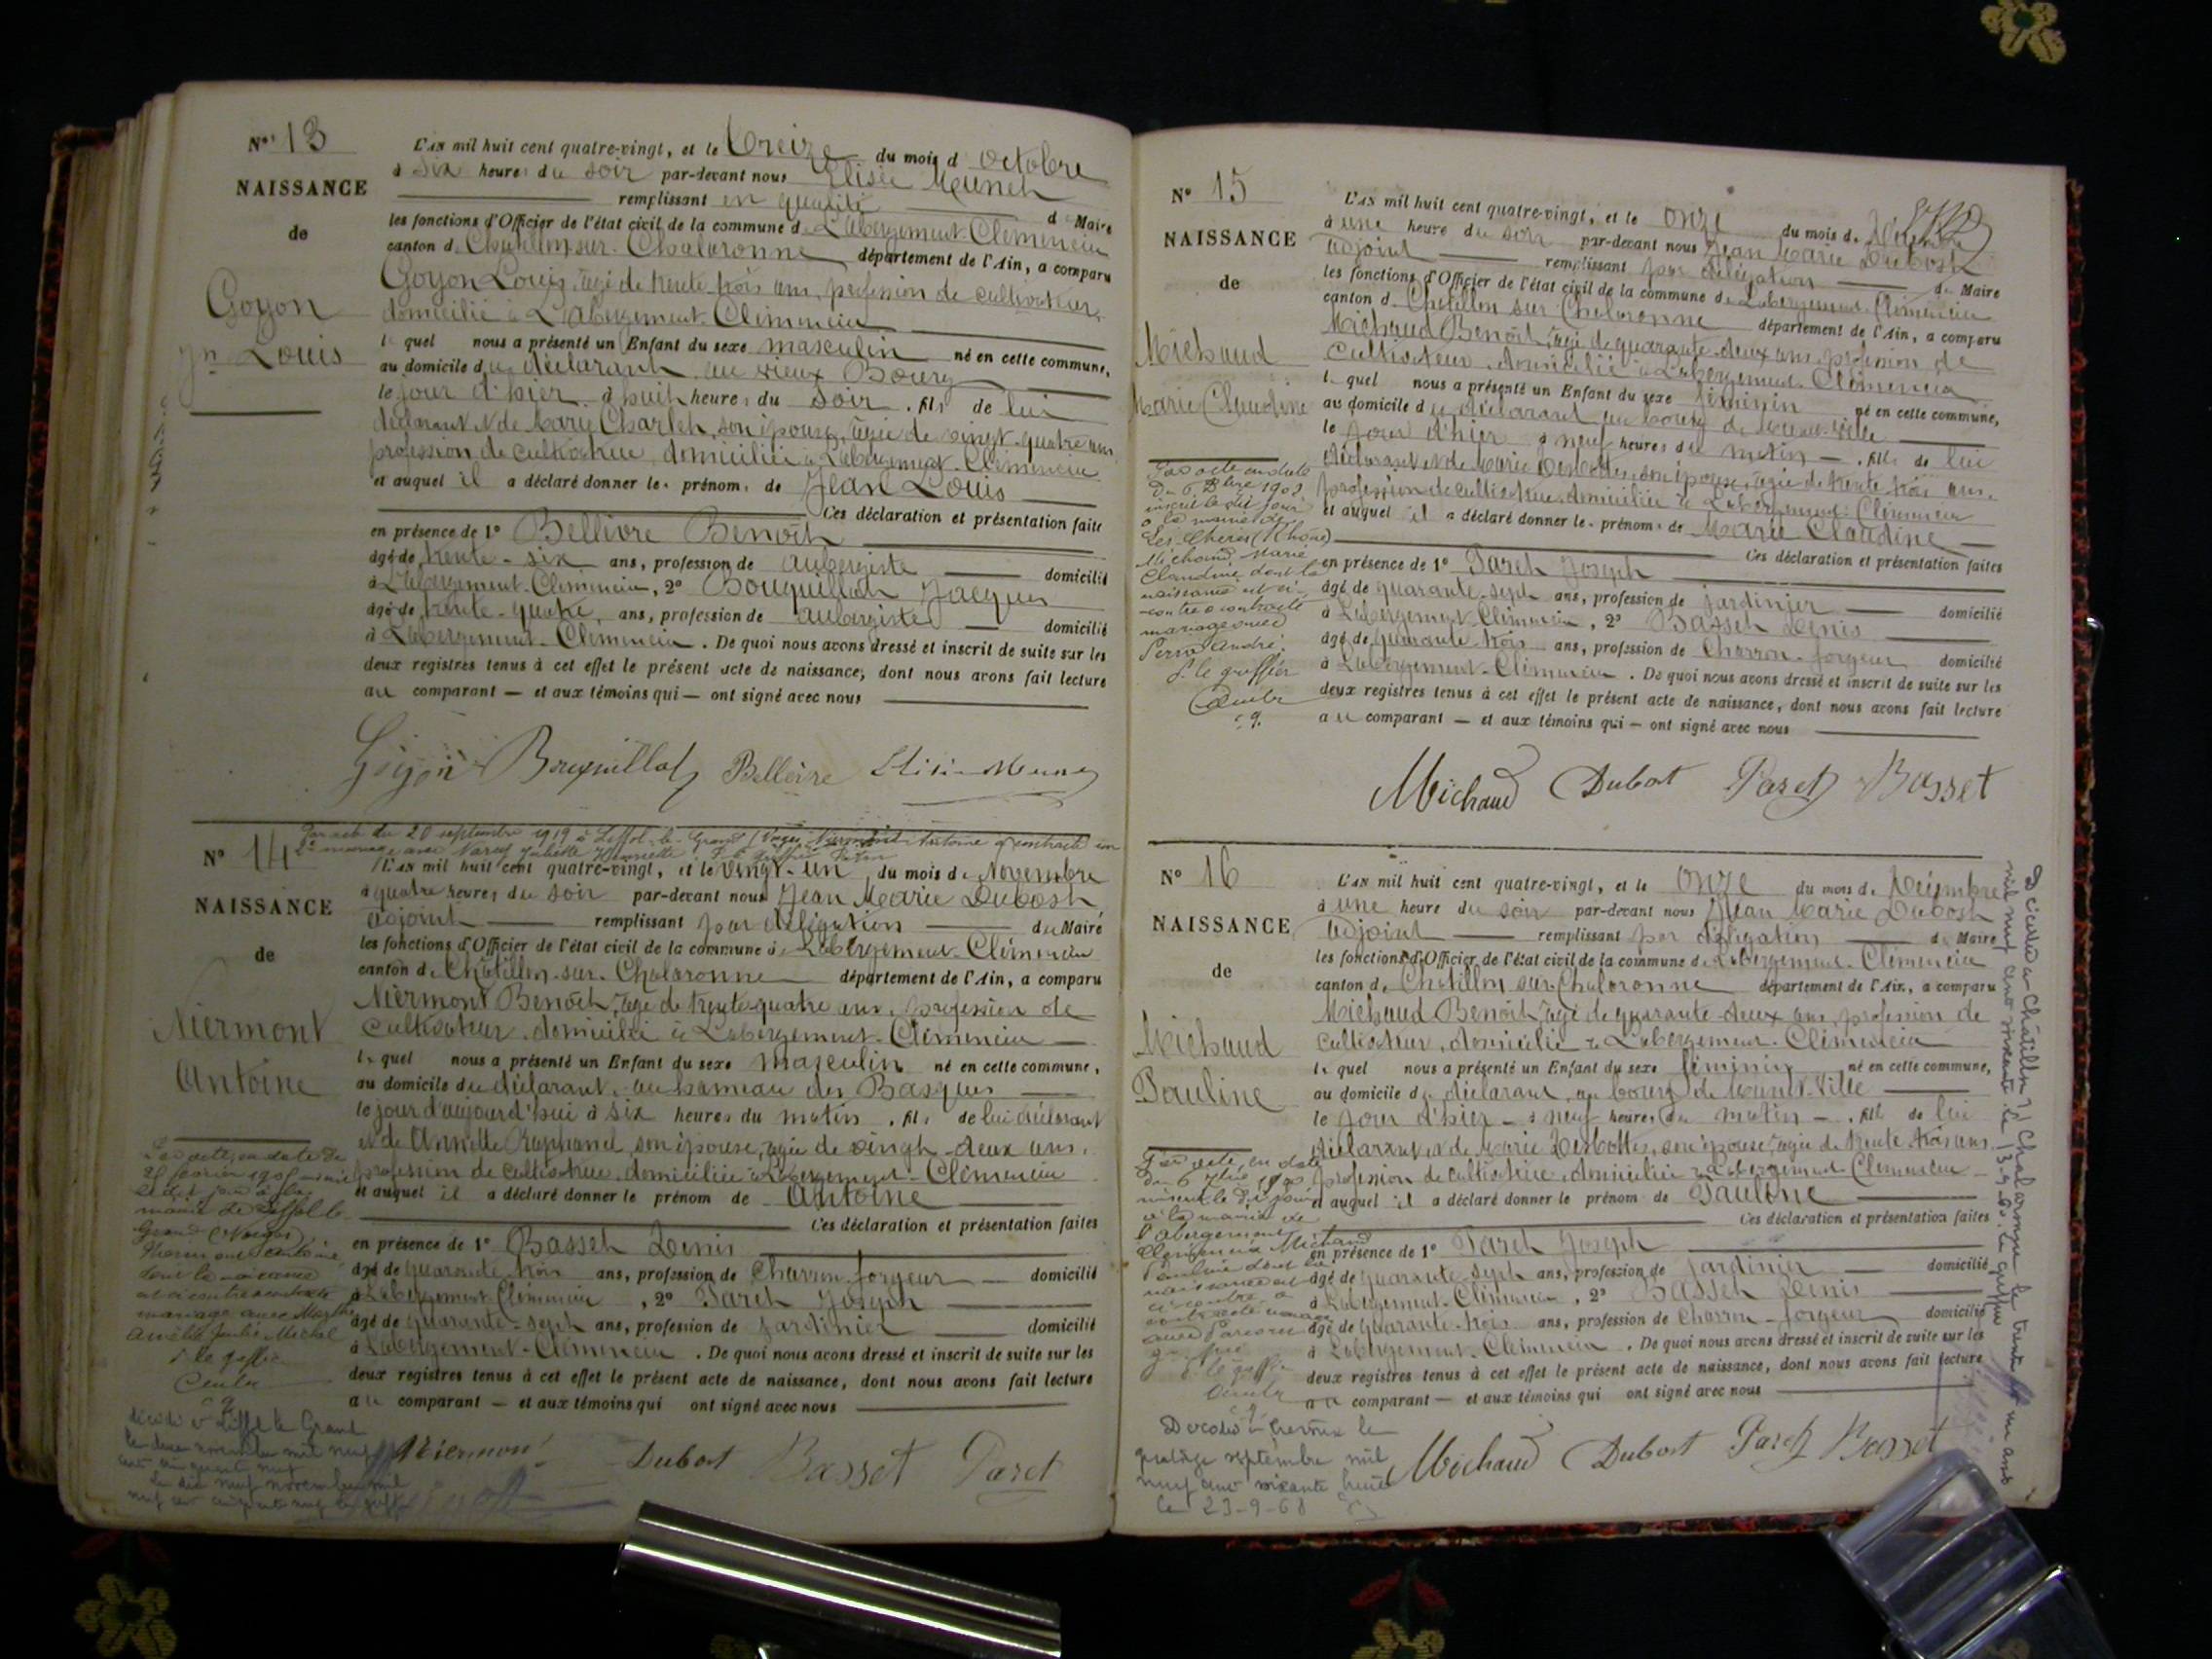 N° 13
NAISSANCE
de
Goyon
Jn Louis
L'AN mil huit cent quatre-vingt, et le treize du mois d octobre
à six heures du soir par-devant nous Elisée Meunet
remplissant en qualité d Maire
les fonctions d'Officier de l'état civil de la commune de L'abergement-Clémencia
canton de Chatillon sur Chalaronne département de l'Ain, a comparu
Goyon Louis, âgé de trente trois ans, profession de cultivateur,
domicilié à L'abergement-Clémencia
lequel nous a présenté un Enfant du sexe masculin né en cette commune,
au domicile du déclarant au vieux Bourg
le jour d'hier à huit heures du soir, fils de lui
déclarant et de Marie Charlet, son épouse, âgée de vingt quatre ans
profession de cultivatrice, domiciliée à Labergement-Clémencia
et auquel il a déclaré donner les prénoms de Jean Louis
Ces déclaration et présentation faite
en présence de 1° Bellivre Benoit
âgé de trente-six ans, profession de aubergiste domicilié
à L'abergement-Clémencia, 2° Bouquillat Jacques
âgé de trente-quatre, ans, profession de aubergiste domicilié
à Labergement-Clémencia. De quoi nous avons dressé et inscrit de suite sur les
deux registres tenus à cet effet le présent acte de naissance, dont nous avons fait lecture
au comparant — et aux témoins qui — ont signé avec nous
Goyon Bellivre
N° 14
Par acte du 20 septembre 1919 à Liffol-le-Grand (Vosges) Niermont Antoine a contracté un
2e mariage avec Juliette Henriette
NAISSANCE
de
Niermont
Antoine
L'AN mil huit cent quatre-vingt, et le vingt-un du mois de Novembre
à quatre heures du soir par-devant nous Jean Marie Dubost
adjoint remplissant par délégation du Maire
les fonctions d'Officier de l'état civil de la commune de Labergement-Clémencia
canton de Châtillon-sur-Chalaronne département de l'Ain, a comparu
Niermont Benoit, âgé de trente-quatre ans, profession de
cultivateur, domicilié à L'abergement-Clémencia
lequel nous a présenté un Enfant du sexe masculin né en cette commune,
au domicile du déclarant, au hameau des Basques
le jour d'aujourd'hui à six heures du matin, fils de lui déclarant
et de Annette son épouse, âgée de vingt-deux ans,
profession de cultivatrice, domiciliée à Labergement-Clémencia
et auquel il a déclaré donner le prénom de Antoine
Ces déclaration et présentation faites
en présence de 1° Basset Denis
âgé de quarante trois ans, profession de Charron-forgeur domicilié
à Labergement Clémencia, 2° Paret Joseph
âgé de quarante-sept ans, profession de jardinier domicilié
à Labergement-Clémencia. De quoi nous avons dressé et inscrit de suite sur les
deux registres tenus à cet effet le présent acte de naissance, dont nous avons fait lecture
au comparant — et aux témoins qui ont signé avec nous
Niermont Dubost Basset Paret
Par acte, en date du
le dit jour à la
mairie de Liffol-le-
Grand (Vosges)
dont la naissance
est ci contre a contracté
mariage avec Marthe
le greffier
décédé à Liffol le Grand
N° 15
NAISSANCE
de
Michaud
Marie Claudine
L'AN mil huit cent quatre-vingt, et le onze du mois de
à une heure du soir par-devant nous Jean Marie Dubost
adjoint remplissant par délégation du Maire
les fonctions d'Officier de l'état civil de la commune de Labergement-Clémencia
canton de Chatillon sur Chalaronne département de l'Ain, a comparu
Michaud Benoit, âgé de quarante-deux ans, profession de
cultivateur, domicilié à Labergement-Clémencia
lequel nous a présenté un Enfant du sexe féminin né en cette commune,
au domicile du déclarant au bourg de
le jour d'hier à neuf heures du matin —, fille de lui
déclarant et de Marie Desbottes, son épouse, âgée de trente trois ans,
profession de cultivatrice, domiciliée à Labergement-Clémencia
et auquel il a déclaré donner les prénoms de Marie Claudine
Ces déclaration et présentation faites
en présence de 1° Paret Joseph
âgé de quarante-sept ans, profession de jardinier domicilié
à Labergement-Clémencia, 2° Basset Denis
âgé de quarante-trois ans, profession de Charron-forgeur domicilié
à Labergement-Clémencia. De quoi nous avons dressé et inscrit de suite sur les
deux registres tenus à cet effet le présent acte de naissance, dont nous avons fait lecture
au comparant — et aux témoins qui — ont signé avec nous
Michaud Dubost Paret Basset
Par acte en date
inscrit le dit jour
à la mairie de
Les Chères (Rhône)
Michaud Marie
Claudine dont la
naissance est ci-
contre a contracté
mariage avec
André
le greffier
N° 16
NAISSANCE
de
Michaud
Pauline
L'AN mil huit cent quatre-vingt, et le onze du mois de Décembre
à une heure du soir par-devant nous Jean Marie Dubost
adjoint remplissant par délégation d Maire
les fonctions d'Officier de l'état civil de la commune de Labergement-Clémencia
canton de Chatillon sur Chalaronne département de l'Ain, a comparu
Michaud Benoit, âgé de quarante-deux ans, profession de
cultivateur, domicilié à L'abergement-Clémencia
lequel nous a présenté un Enfant du sexe féminin né en cette commune,
au domicile du déclarant, au bourg de
le jour d'hier — à neuf heures du matin —, fille de lui
déclarant et de Marie Desbottes, son épouse, âgée de trente trois ans,
profession de cultivatrice, domiciliée à Labergement-Clémencia
et auquel il a déclaré donner le prénom de Pauline
Ces déclaration et présentation faites
en présence de 1° Paret Joseph
âgé de quarante-sept ans, profession de jardinier domicilié
à Labergement-Clémencia, 2° Basset Denis
âgé de quarante-trois ans, profession de Charron-forgeur domicilié
à Labergement-Clémencia. De quoi nous avons dressé et inscrit de suite sur les
deux registres tenus à cet effet le présent acte de naissance, dont nous avons fait lecture
au comparant — et aux témoins qui ont signé avec nous
Michaud Dubost Paret Basset
Par acte, en date
à la mairie de
l'abergement
Clémencia Michaud
Pauline dont la
naissance est
ci contre a
le greffier
septembre mil
neuf cent soixante huit
le 23-9-68
Décédée à Châtillon s/ Chalaronne le trente